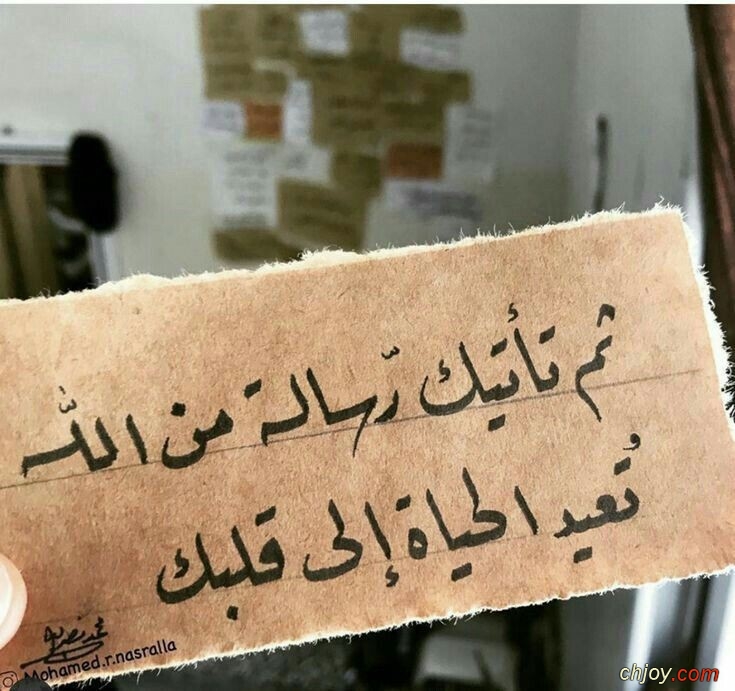 ثم تأتيك رّسالة من اللّٰه
تُعيد الحياة إلى قلبك
Mohamed.r.nasralla
chjoy.com